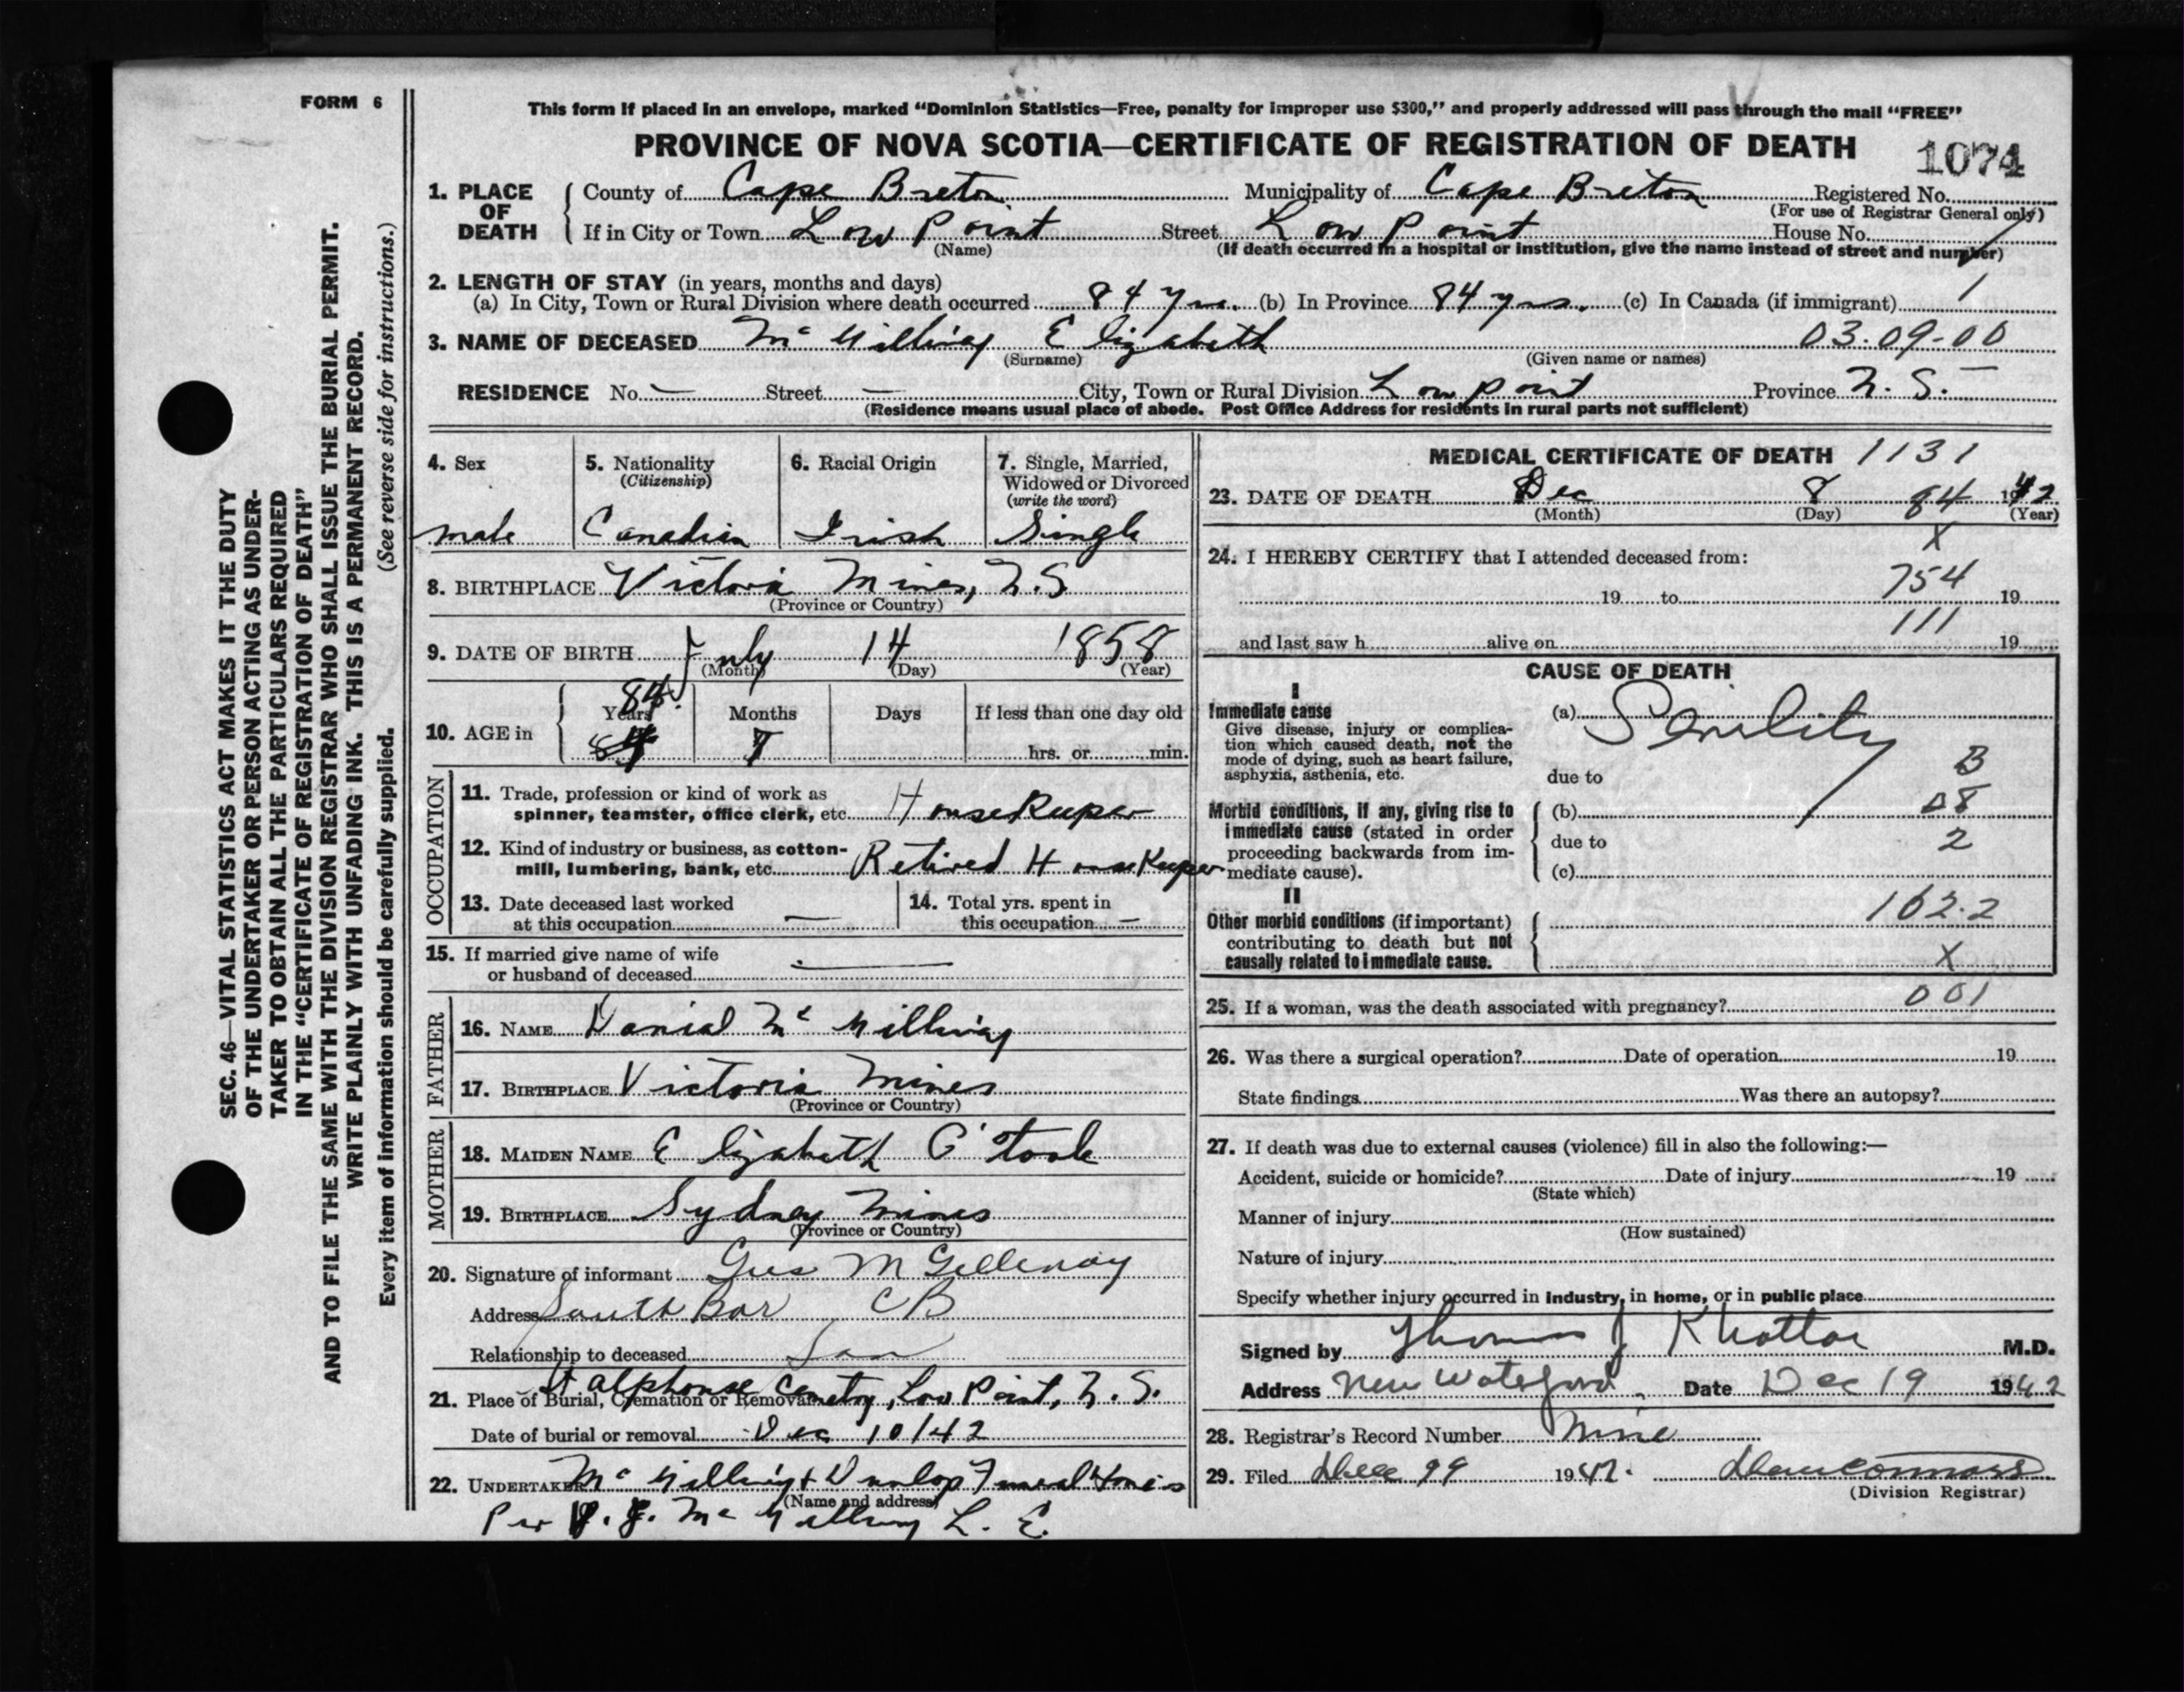 FORM 6
This form if placed in an envelope, marked “Dominion Statistics—Free, penalty for improper use $300,” and properly addressed will pass through the mail “FREE”
PROVINCE OF NOVA SCOTIA—CERTIFICATE OF REGISTRATION OF DEATH
1074
1. PLACE OF DEATH County of Cape Breton Municipality of Cape Breton Registered No.
(For use of Registrar General only)
If in City or Town Low Point Street Low Point House No.
(Name) (If death occurred in a hospital or institution, give the name instead of street and number)
2. LENGTH OF STAY (in years, months and days)
(a) In City, Town or Rural Division where death occurred 84 yrs. (b) In Province 84 yrs. (c) In Canada (if immigrant) /
3. NAME OF DECEASED McGillivray Elizabeth 03.09-00
(Surname) (Given name or names)
RESIDENCE No. — Street — City, Town or Rural Division Low Point Province N. S.
(Residence means usual place of abode. Post Office Address for residents in rural parts not sufficient)
4. Sex
male
5. Nationality
(Citizenship)
Canadian
6. Racial Origin
Irish
7. Single, Married,
Widowed or Divorced
(write the word)
Single
8. BIRTHPLACE Victoria Mines, N.S
(Province or Country)
9. DATE OF BIRTH July 14 1858
(Month) (Day) (Year)
10. AGE in
84
Years Months Days If less than one day old
hrs. or min.
OCCUPATION
11. Trade, profession or kind of work as
spinner, teamster, office clerk, etc. HouseKeeper
12. Kind of industry or business, as cotton-
mill, lumbering, bank, etc. Retired HouseKeeper
13. Date deceased last worked
at this occupation —
14. Total yrs. spent in
this occupation —
15. If married give name of wife
or husband of deceased —
FATHER
16. NAME Danial McGillivray
17. BIRTHPLACE Victoria Mines
(Province or Country)
MOTHER
18. MAIDEN NAME Elizabeth O'Toole
19. BIRTHPLACE Sydney Mines
(Province or Country)
20. Signature of informant Gus McGillivray
Address South Bar CB
Relationship to deceased Son
21. Place of Burial, Cremation or Removal St Alphonse Cemetry, Low Point, N. S.
Date of burial or removal Dec 10/42
22. UNDERTAKER McGillivray & Dunlop Funeral Homes
(Name and address)
Per J. McGillivray L. E.
MEDICAL CERTIFICATE OF DEATH 1131
23. DATE OF DEATH Dec 8 84 1942
(Month) (Day) (Year)
X
24. I HEREBY CERTIFY that I attended deceased from:
754
19 to 19
111
and last saw h alive on 19
CAUSE OF DEATH
I
Immediate cause
Give disease, injury or complica-
tion which caused death, not the
mode of dying, such as heart failure,
asphyxia, asthenia, etc.
(a) Senility
due to B
Morbid conditions, if any, giving rise to
immediate cause (stated in order
proceeding backwards from im-
mediate cause).
(b) 08
due to 2
(c)
II
Other morbid conditions (if important)
contributing to death but not
causally related to immediate cause.
162.2
X
25. If a woman, was the death associated with pregnancy? 001
26. Was there a surgical operation? Date of operation 19
State findings Was there an autopsy?
27. If death was due to external causes (violence) fill in also the following:—
Accident, suicide or homicide? Date of injury 19
(State which)
Manner of injury
(How sustained)
Nature of injury
Specify whether injury occurred in industry, in home, or in public place
Signed by Thomas J Khattar M.D.
Address New Waterford. Date Dec 19 1942
28. Registrar's Record Number Nine
29. Filed 1942.
(Division Registrar)
SEC. 46—VITAL STATISTICS ACT MAKES IT THE DUTY
OF THE UNDERTAKER OR PERSON ACTING AS UNDER-
TAKER TO OBTAIN ALL THE PARTICULARS REQUIRED
IN THE “CERTIFICATE OF REGISTRATION OF DEATH”
AND TO FILE THE SAME WITH THE DIVISION REGISTRAR WHO SHALL ISSUE THE BURIAL PERMIT.
WRITE PLAINLY WITH UNFADING INK. THIS IS A PERMANENT RECORD.
Every item of information should be carefully supplied. (See reverse side for instructions.)